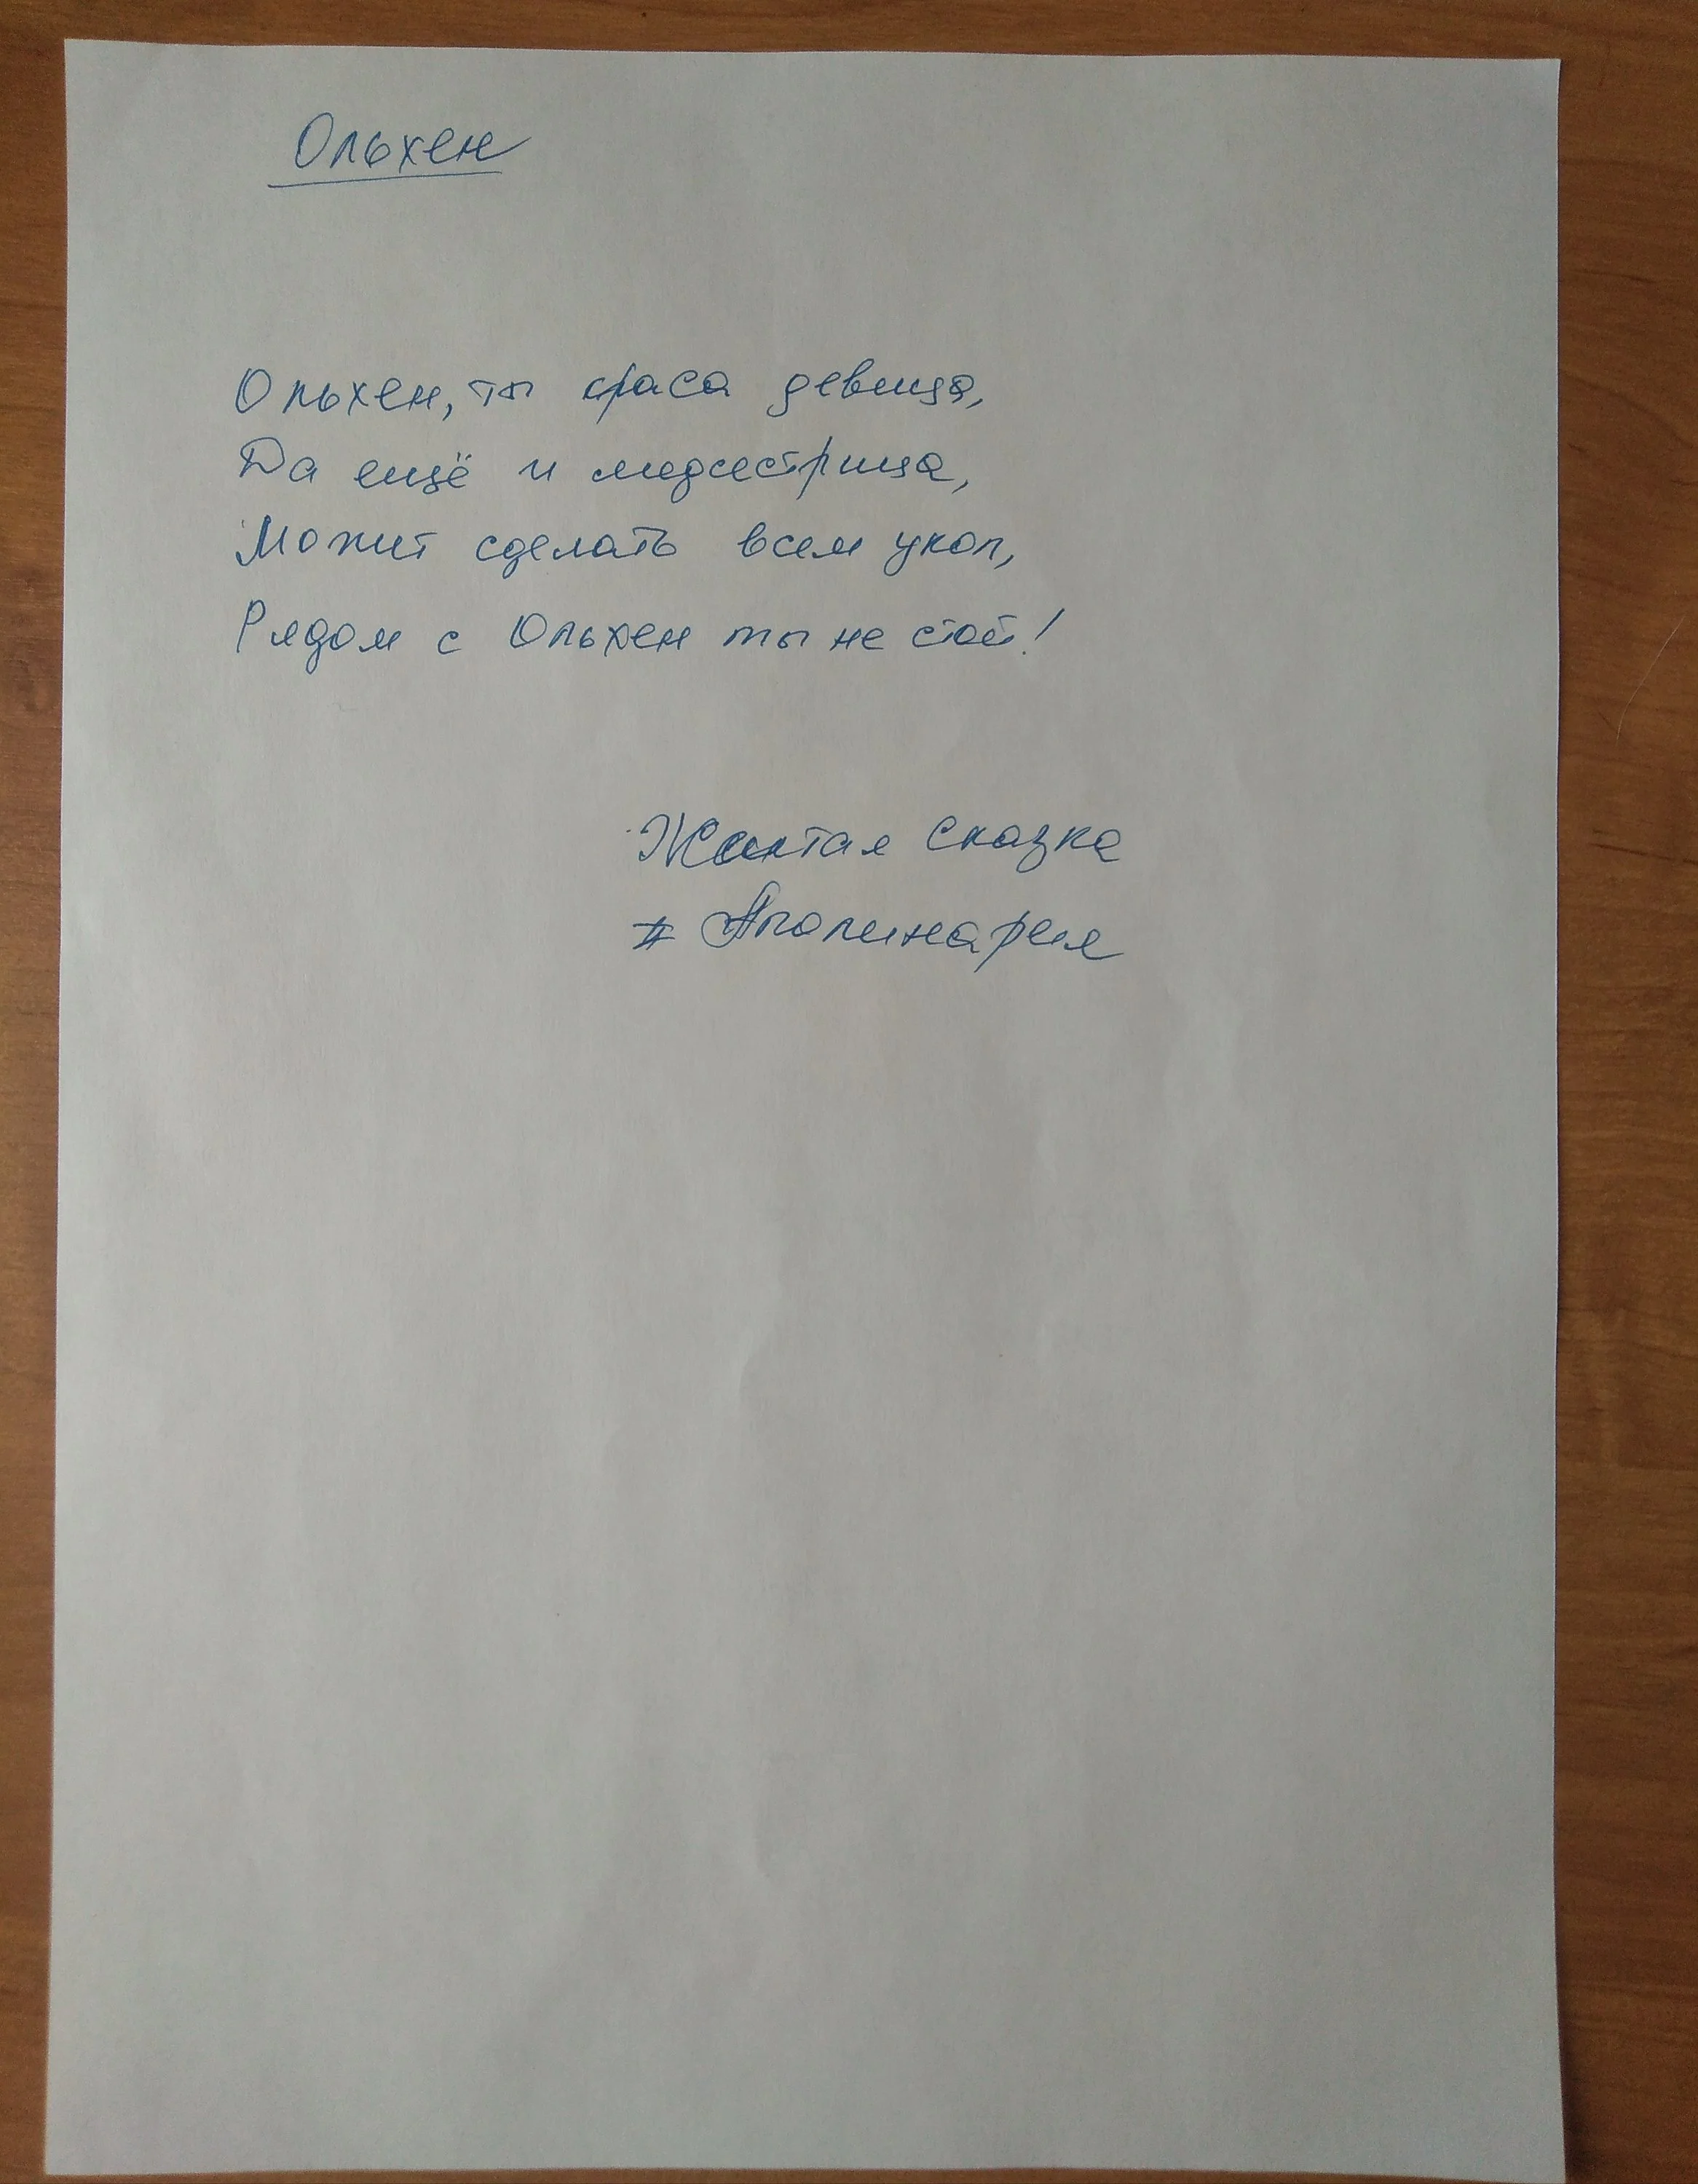 Ольхен
Ольхен, ты краса девица,
Да ещё и медсестрица,
Может сделать всем укол,
Рядом с Ольхен ты не стой!
сказка
# Аполинария